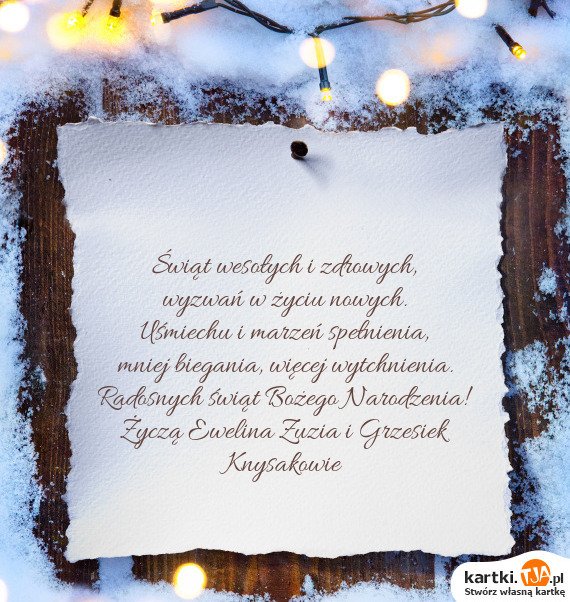 Świąt wesołych i zdrowych,
wyzwań w życiu nowych.
Uśmiechu i marzeń spełnienia,
mniej biegania, więcej wytchnienia.
Radosnych świąt Bożego Narodzenia!
Życzą Ewelina Zuzia i Grzesiek
Knysakowie
kartki.TJA.pl
Stwórz własną kartkę